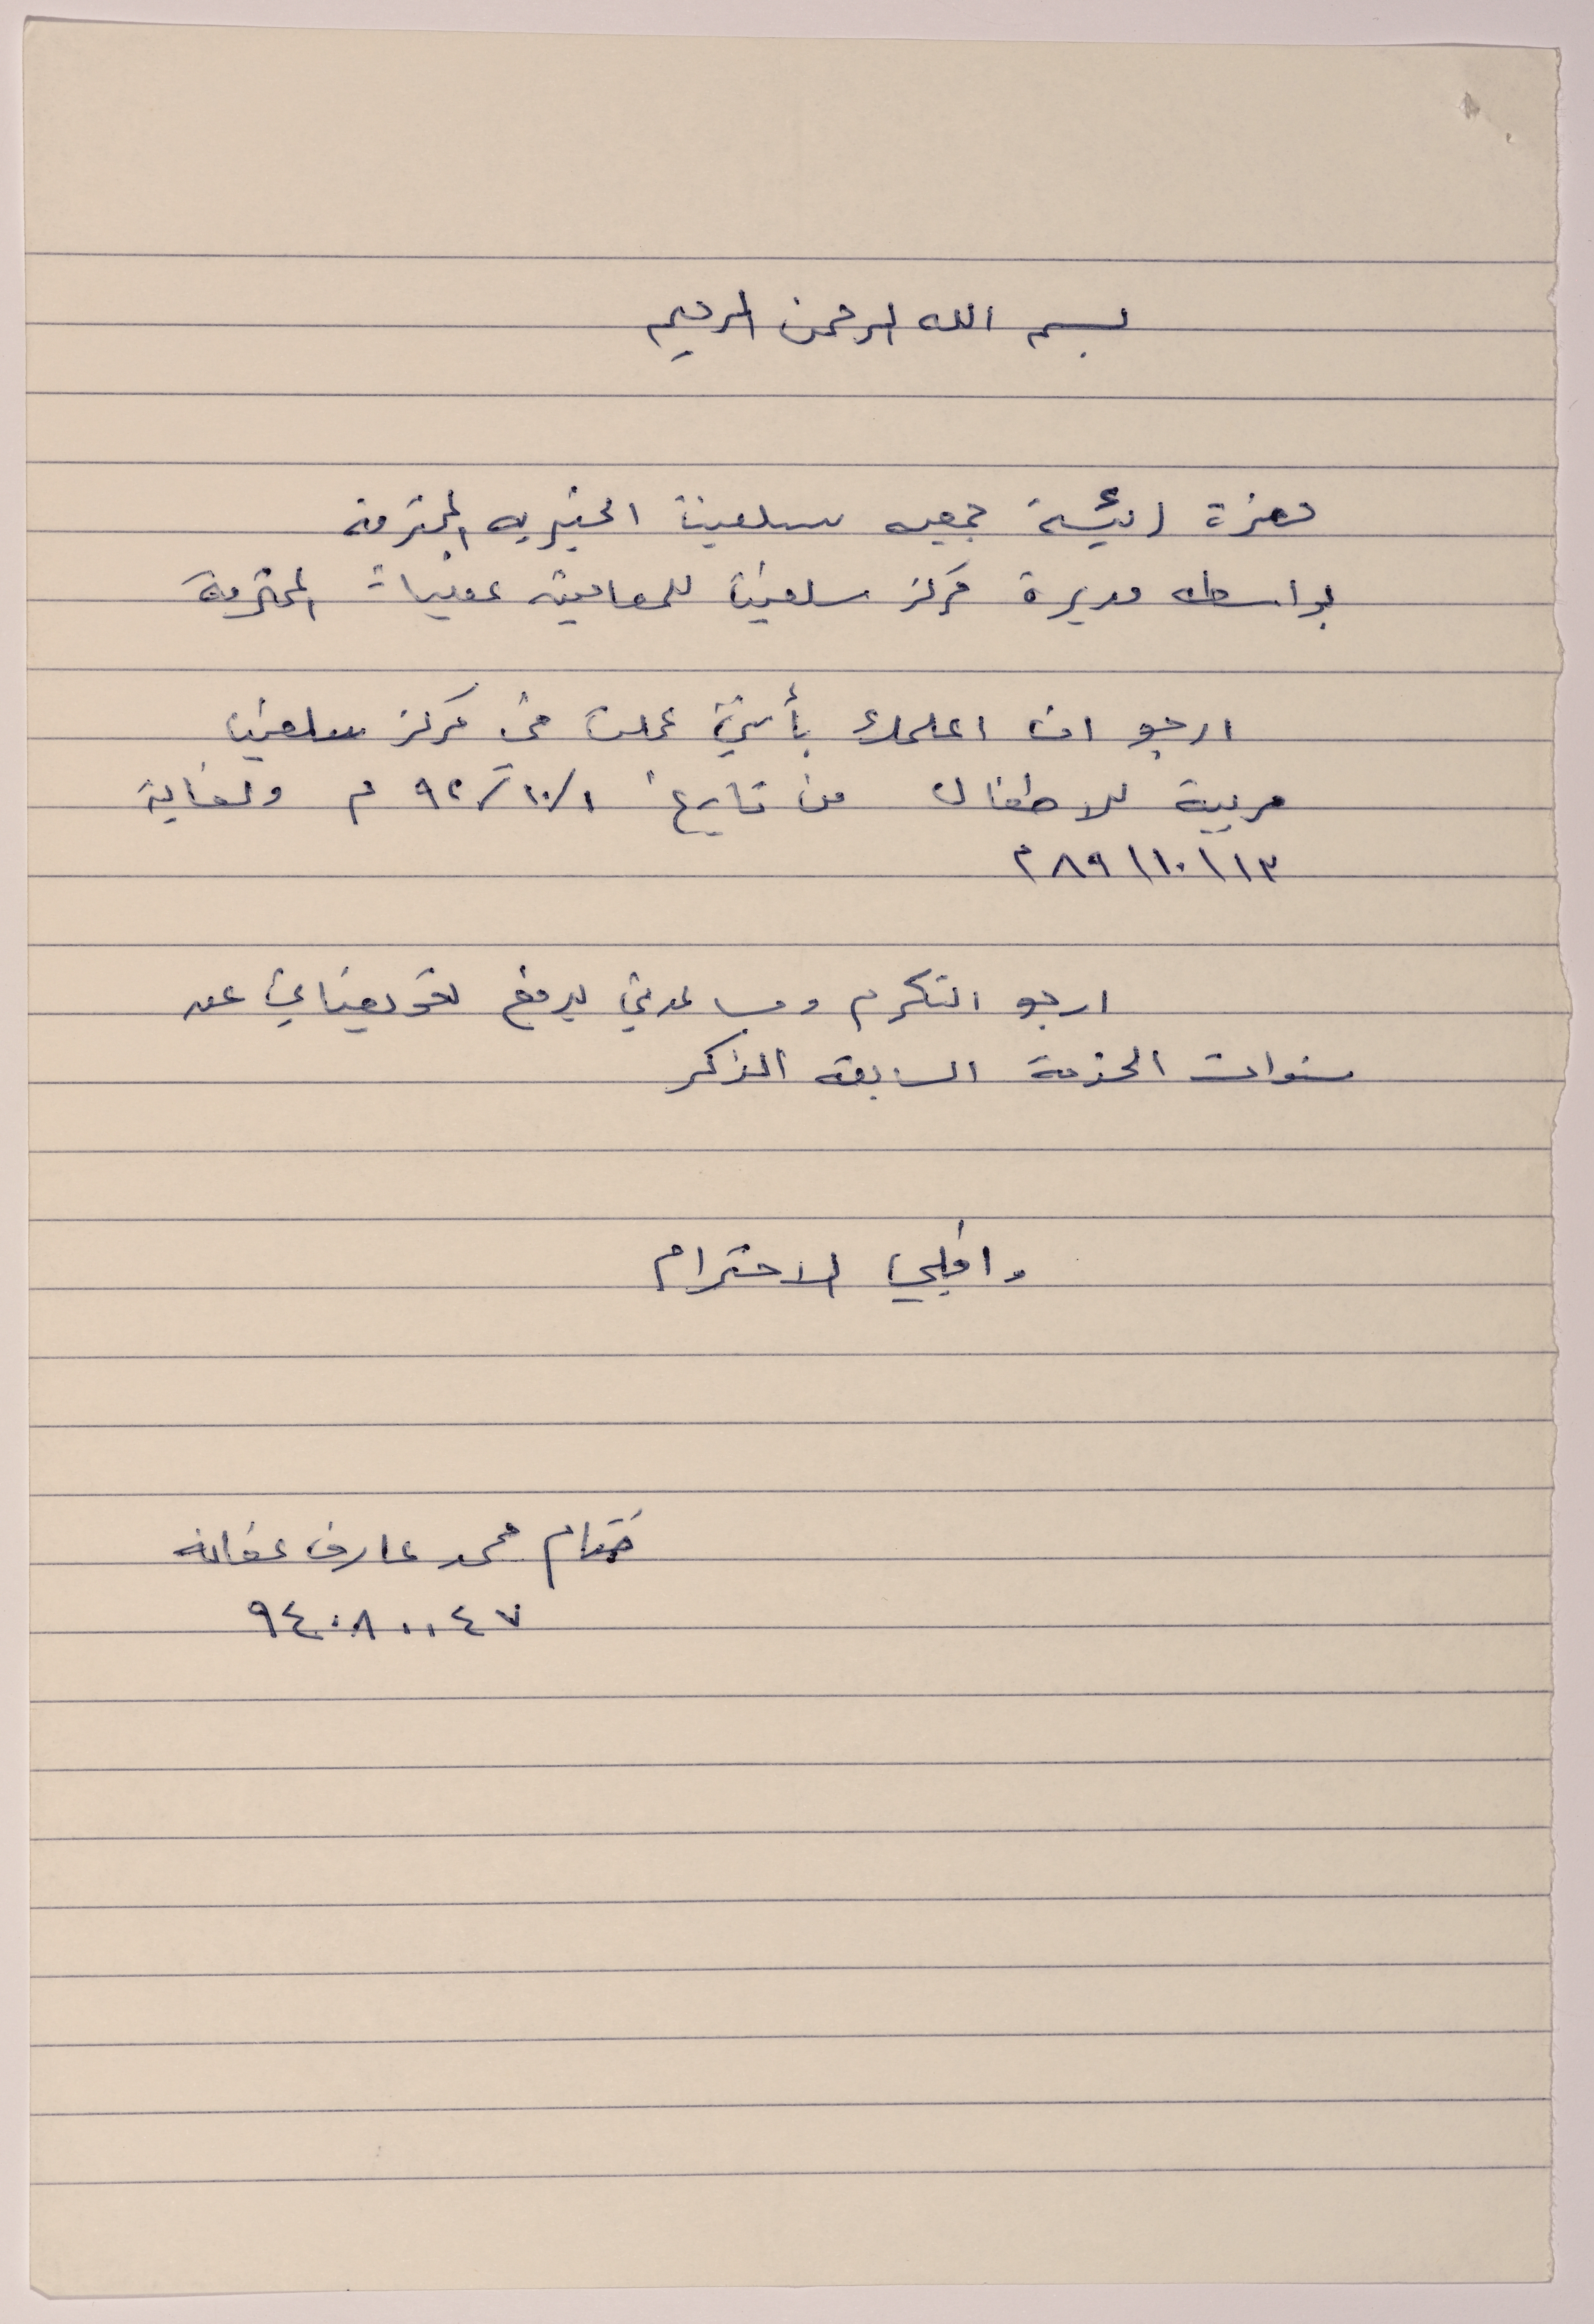 بسم الله الرحمن الرحيم
حضرة رئيسة جمعيه سلفيت الخيريه المحترمة
بواسطه مديرة مركز سلفيت للمعاقين عقليات المحترمة
ارجو ان اعلمك بأنني عملت في مركز سلفيت
مربية للاطفال من تاريخ ١/١٠/٩٢ م ولغاية
١٣\١٠\٨٩ م
ارجو التكرم ومساعدتي لدفع تعويضاتي عن
سنوات الخدمة السابقه الذكر
واقبلي الاحترام
ختام محمد عارف عفانه
٩٤٠٨٠٠٤٧